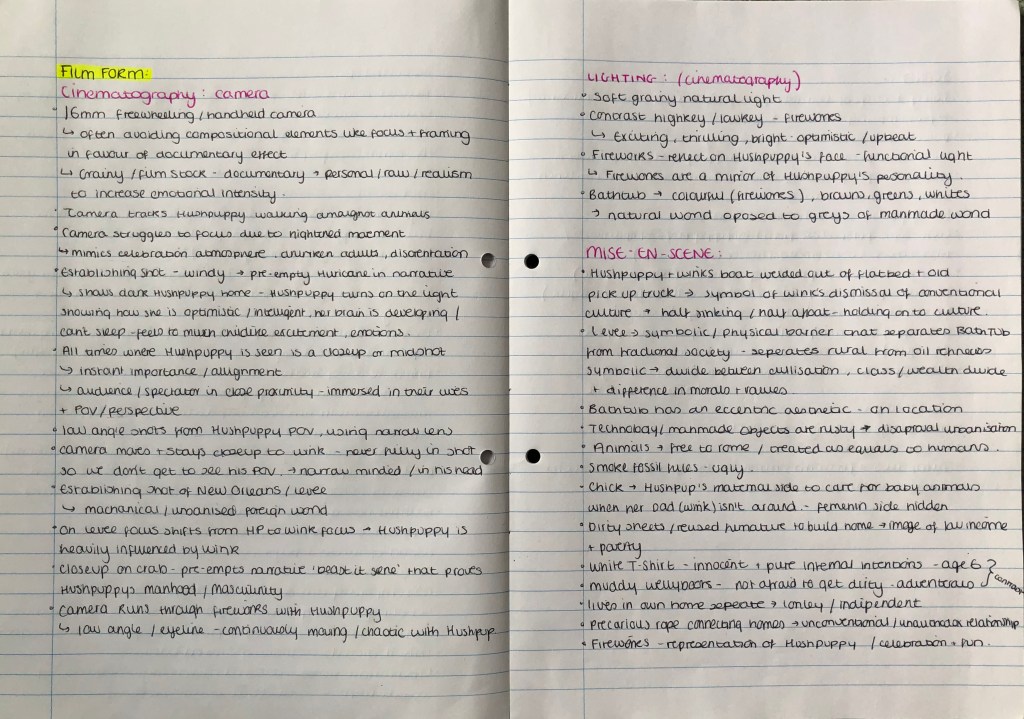 FILM FORM:
Cinematography: camera
• 16mm freewheeling/handheld camera
↳ often avoiding compositional elements like focus + framing
in favour of documentary effect
↳ Grainy/film stock - documentary → personal/raw/realism
to increase emotional intensity.
• Camera tracks Hushpuppy walking amongst animals
• Camera struggles to focus due to hightned movement
↳ mimics celebration atmosphere, drunken adults, disorentation
• Establishing shot - windy → pre-empty Huricane in narrative
↳ shows dark Hushpuppy home - Hushpuppy turns on the light
showing how she is optimistic/intelligent, her brain is developing/
cant sleep - feels to much childlike excitement, emotions.
• All times where Hushpuppy is seen is a closeup or midshot
↳ instant importance/alignment
↳ audience/spectator in close proximity - immersed in their lives
+ POV/perspective
• low angle shots from Hushpuppy POV, using narrow lens
• camera moves + stays closeup to wink - never fully in shot
so we don't get to see his POV. → narrow minded/in his head
• Establishing shot of New Orleans/levee
↳ machanical/urbanised foreign world
• On levee focus shifts from HP to wink focus → Hushpuppy is
heavily influenced by wink
• closeup on crab - pre-empts narrative 'beast it sene' that proves
Hushpuppys manhood/masculinity
• camera runs through fireworks with Hushpuppy
↳ low angle/eyeline - continuously moving/chaotic with Hushpup
LIGHTING: (cinematography)
• Soft grainy natural light
• concrast highkey/lowkey - fireworks
↳ Exciting, thrilling, bright - optimistic/upbeat
• Fireworks - reflect on Hushpuppy's face - functional light
↳ Fireworks are a mirror of Hushpuppy's personality.
• Bathtub → colourful (fireworks), browns, greens, whites
→ natural world oposed to greys of manmade world
MISE-EN-SCENE:
• Hushpuppy + winks boat welded out of flatbed + old
pick up truck → symbol of wink's dismissal of conventional
culture → half sinking/half afloat - holding on to culture.
• levee → symbolic/physical barrier that separates BathTub
from tradional society - seperates rural from oil refineries
symbolic → divide between civilisation, class/wealth divide
+ difference in morals + values
• Bathtub has an eccentric aesthetic - on location
• Technology/manmade objects are rusty → disaproval urbanisation
• Animals → free to rome/created as equals to humans.
• smoke fossil fules - ugly.
• Chick → Hushpup's maternal side to care for baby animals
when her dad (wink) isn't around - feminin side hidden
• Dirty sheets/reused furniture to build home → image of low income
+ poverty
• white T-shirt - innocent + pure internal intentions - age 6
• muddy wellyboots - not afraid to get dirty - adventerous
• lives in own home seperate → lonley/indipendent
• Precarious rope connecting homes → unconventional/unauthodox relationship
• Fireworks - representation of Hushpuppy/celebration + fun.